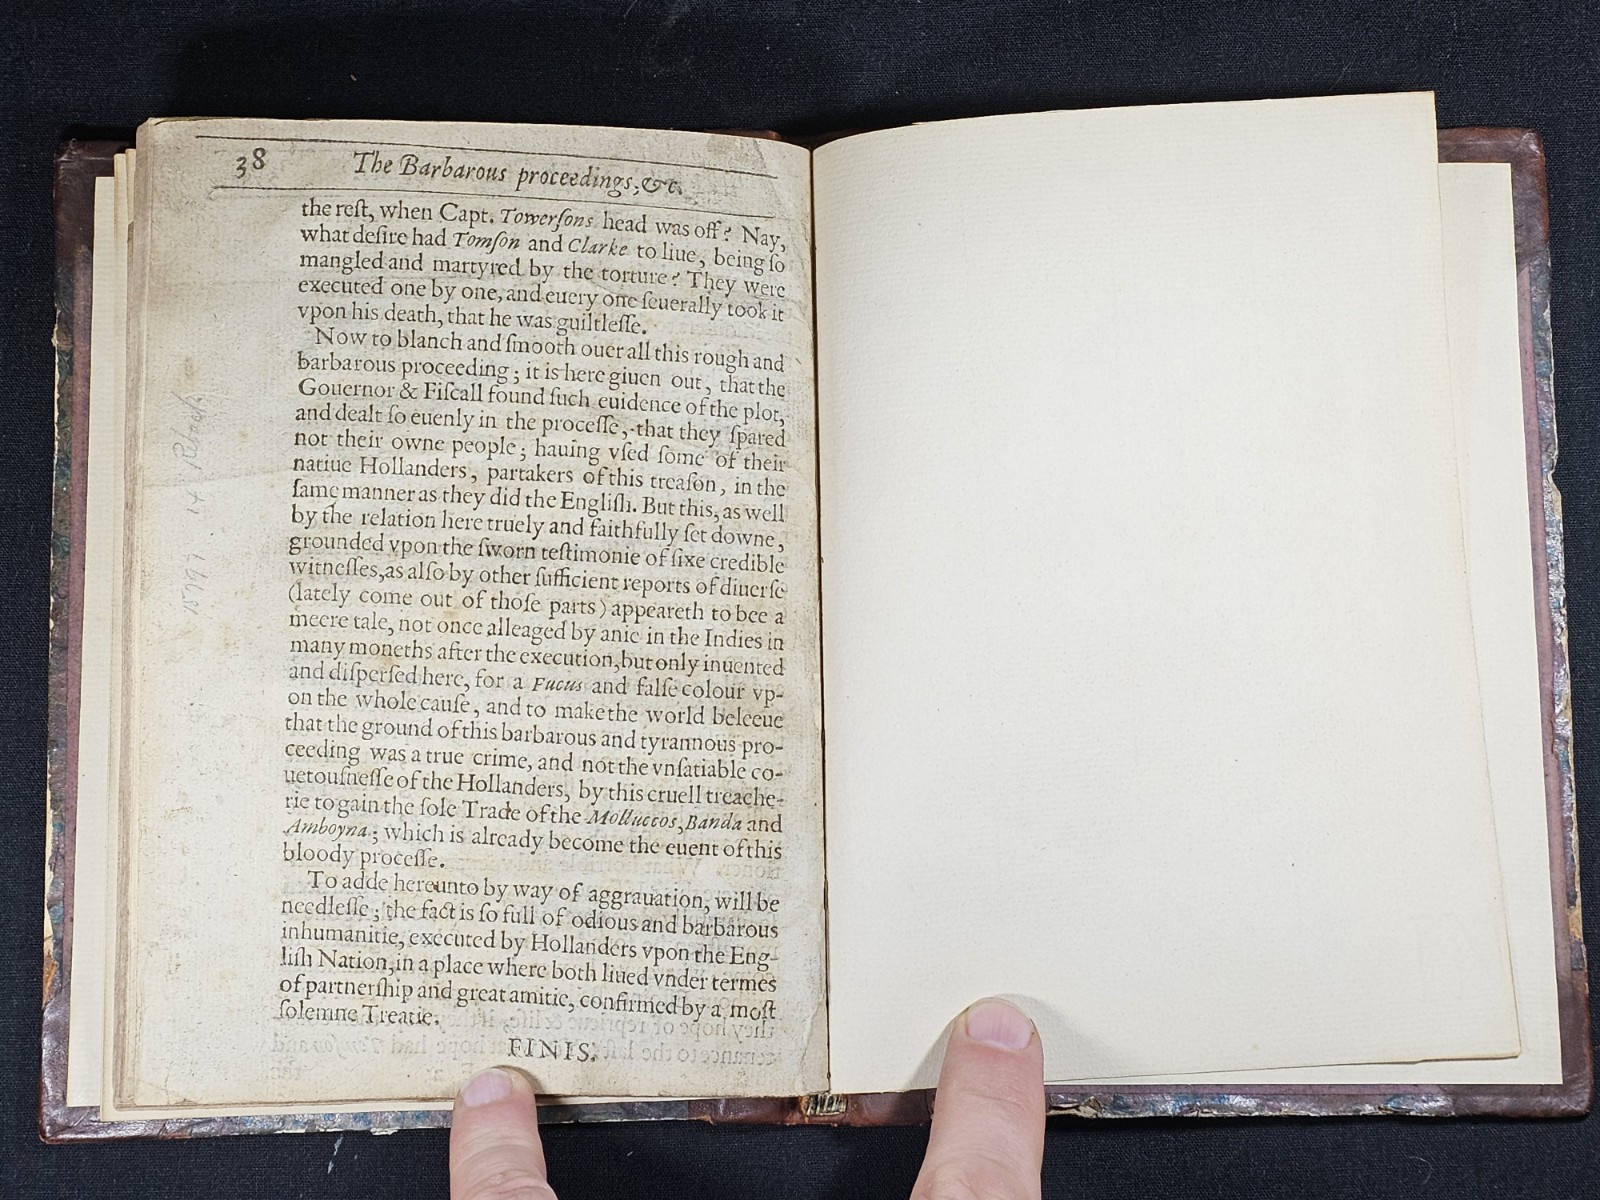 38 The Barbarous proceedings, &c.
the reſt, when Capt. Towerſons head was off? Nay,
what deſire had Tomſon and Clarke to liue, being ſo
mangled and martyred by the torture? They were
executed one by one, and euery one ſeuerally took it
vpon his death, that he was guiltleſſe.
Now to blanch and ſmooth ouer all this rough and
barbarous proceeding; it is here giuen out, that the
Gouernor & Fiſcall found ſuch euidence of the plot,
and dealt ſo euenly in the proceſſe, that they ſpared
not their owne people; hauing vſed ſome of their
natiue Hollanders, partakers of this treaſon, in the
ſame manner as they did the Engliſh. But this, as well
by the relation here truely and faithfully ſet downe,
grounded vpon the ſworn teſtimonie of ſixe credible
witneſſes, as alſo by other ſufficient reports of diuerſe
(lately come out of thoſe parts) appeareth to bee a
meere tale, not once alleaged by anie in the Indies in
many moneths after the execution, but only inuented
and diſperſed here, for a Fucus and falſe colour vp-
on the whole cauſe, and to make the world beleeue
that the ground of this barbarous and tyrannous pro-
ceeding was a true crime, and not the vnſatiable co-
uetouſneſſe of the Hollanders, by this cruell treache-
rie to gain the ſole Trade of the Molluccos, Banda and
Amboyna; which is already become the euent of this
bloody proceſſe.
To adde hereunto by way of aggrauation, will be
needleſſe; the fact is ſo full of odious and barbarous
inhumanitie, executed by Hollanders vpon the Eng-
liſh Nation, in a place where both liued vnder termes
of partnerſhip and great amitie, confirmed by a moſt
ſolemne Treatie.
FINIS.